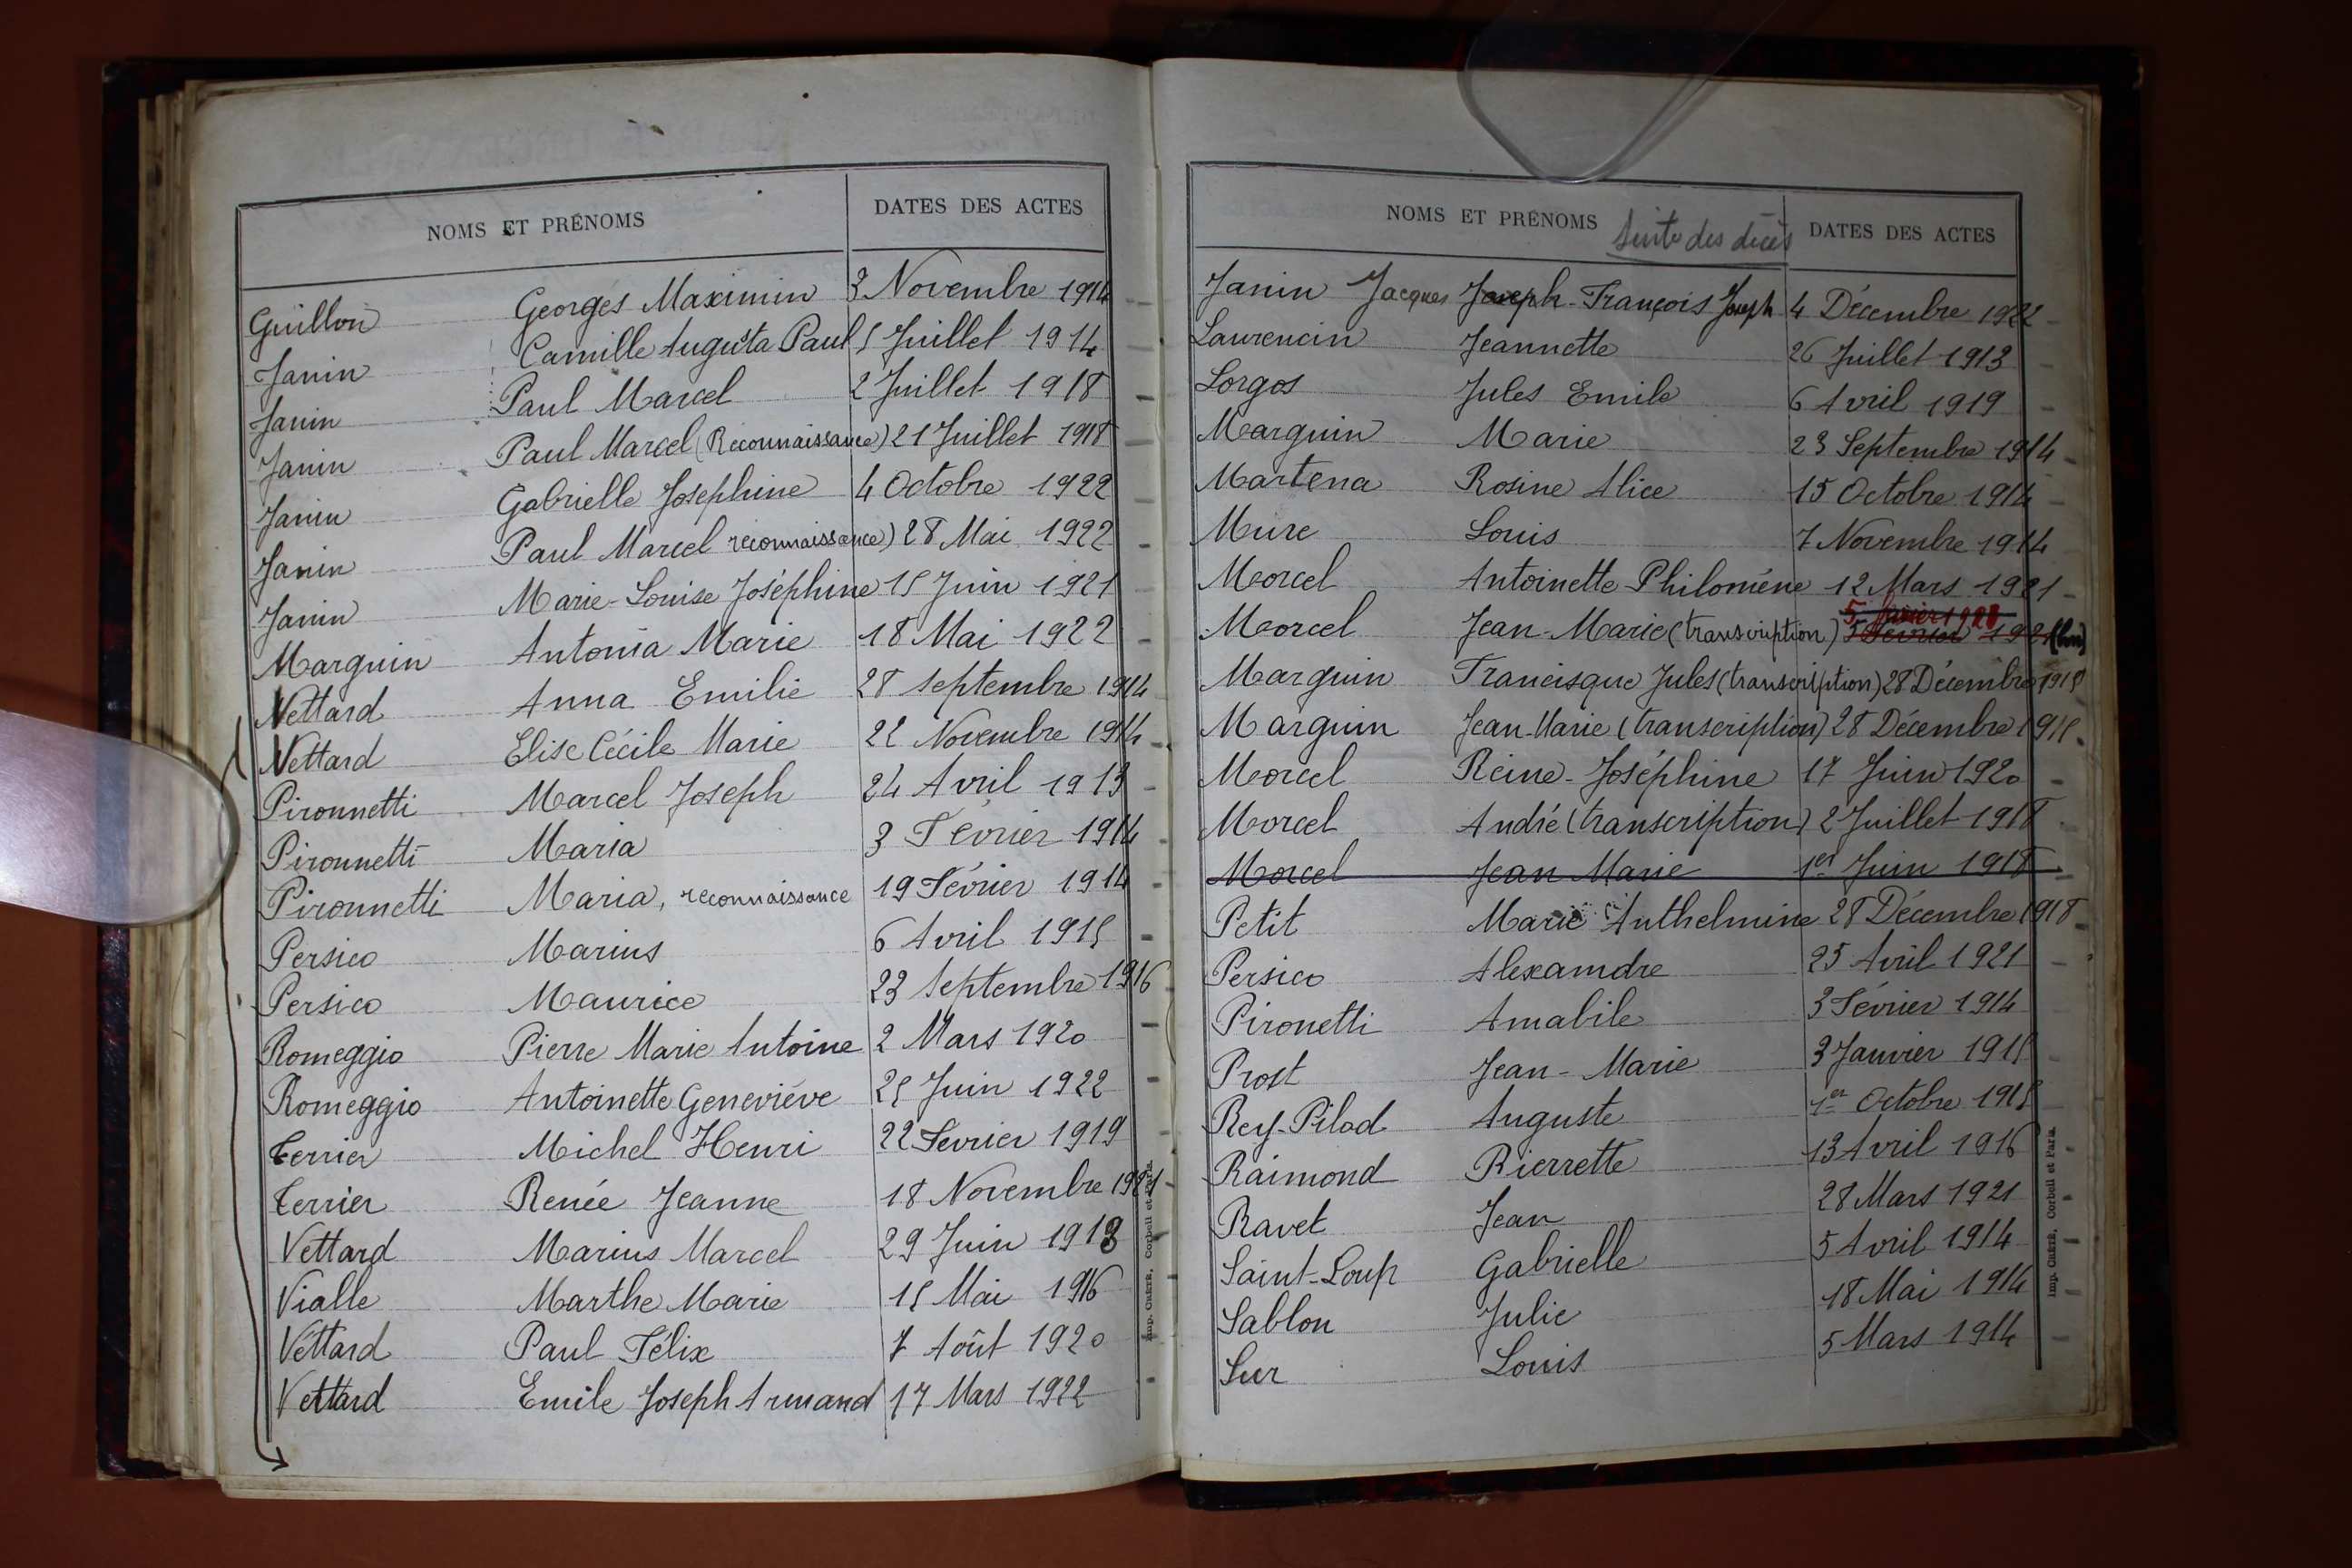 NOMS ET PRÉNOMS DATES DES ACTES
Guillon Georges Maximin 3 Novembre 1914
Janin Camille Augusta Paul 5 Juillet 1914
Janin Paul Marcel 2 Juillet 1918
Janin Paul Marcel (Reconnaissance) 21 Juillet 1918
Janin Gabrielle Josephine 4 Octobre 1922
Janin Paul Marcel reconnaissance) 28 Mai 1922
Janin Marie-Louise Joséphine 15 Juin 1921
Marguin Antonia Marie 18 Mai 1922
Vettard Anna Emilie 28 septembre 1914
Vettard Elise Cécile Marie 22 Novembre 1914
Pironnetti Marcel Joseph 24 Avril 1913
Pironnetti Maria 3 Février 1914
Pironnetti Maria, reconnaissance 19 Février 1914
Persico Marius 6 Avril 1915
Persico Maurice 23 septembre 1916
Romeggio Pierre Marie Antoine 2 Mars 1920
Romeggio Antoinette Geneviève 25 Juin 1922
Terrier Michel Henri 22 Fevrier 1919
Terrier Renée Jeanne 18 Novembre 1921
Vettard Marius Marcel 29 Juin 1913
Vialle Marthe Marie 15 Mai 1916
Vettard Paul Félix 7 Août 1920
Vettard Emile Joseph Armand 17 Mars 1922
Imp. CRÉTÉ, Corbeil et Paris.
NOMS ET PRÉNOMS Suite des décès DATES DES ACTES
Janin Jacques Joseph-François Joseph 4 Décembre 1922
Laurencin Jeannette 26 Juillet 1913
Lorgos Jules Emile 6 Avril 1919
Marguin Marie 23 Septembre 1914
Martena Rosine Alice 15 Octobre 1914
Mure Louis 7 Novembre 1914
Morcel Antoinette Philomène 12 Mars 1921
5 février 1928
Morcel Jean-Marie (transcription) 5 Février 1921 (bon)
Marguin Francisque Jules (transcription) 28 Décembre 1915
Marguin Jean-Marie (transcription) 28 Décembre 1915
Morcel Reine-Joséphine 17 Juin 1920
Morcel André (transcription) 2 Juillet 1918
Morcel Jean Marie 1er Juin 1918
Petit Marie Anthelmine 28 Décembre 1918
Persico Alexamdre 25 Avril 1921
Pironetti Amabile 3 Février 1914
Prost Jean-Marie 3 Janvier 1915
Rey-Pilod Auguste 1er Octobre 1915
Raimond Pierrette 13 Avril 1916
Ravet Jean 28 Mars 1921
Saint-Loup Gabrielle 5 Avril 1914
Sablon Julie 18 Mai 1914
Sur Louis 5 Mars 1914
Imp. CRÉTÉ, Corbeil et Paris.